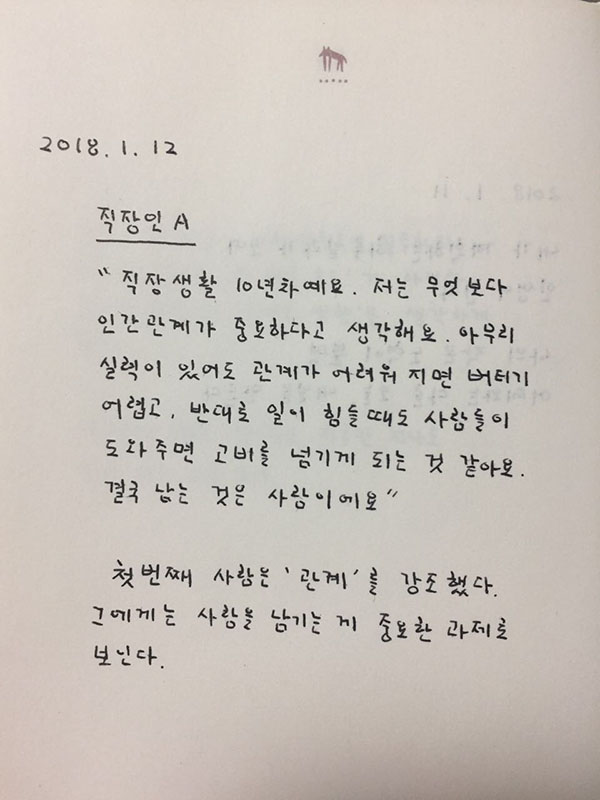 2018. 1. 12
직장인 A
" 직장생활 10년차예요. 저는 무엇보다
인간관계가 중요하다고 생각해요. 아무리
실력이 있어도 관계가 어려워 지면 버티기
어렵고, 반대로 일이 힘들때도 사람들이
도와주면 고비를 넘기게 되는 것 같아요.
결국 남는 것은 사람이에요"
첫 번째 사람은 '관계'를 강조했다.
그에게는 사람을 남기는 게 중요한 과제로
보인다.